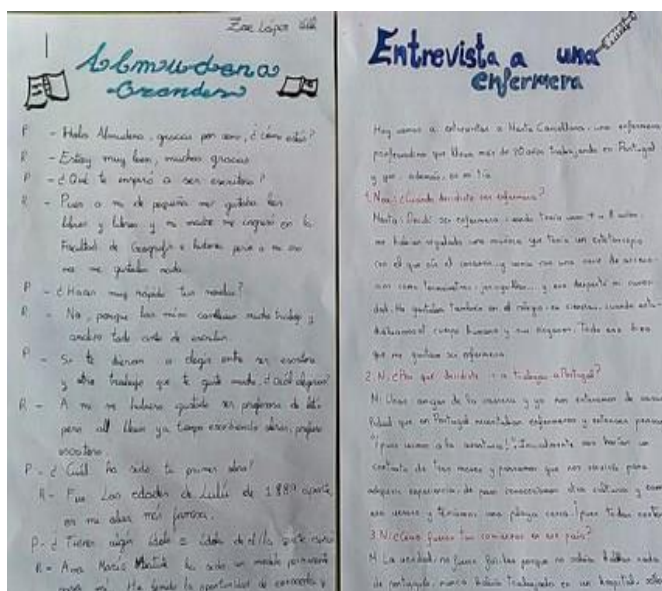 Zoe López
Almudena
Grandes
P - Hola Almudena, gracias por venir, ¿cómo estás?
R - Estoy muy bien, muchas gracias
P - ¿Qué te inspiró a ser escritora?
R - Pues a mi de pequeña me gustaba leer
libros y libros y mi madre me ingresó en la
Facultad de Geografía e historia pero a mi eso
no me gustaba nada.
P - ¿Haces muy rápido tus novelas?
R - No, porque las mías conllevan mucho trabajo y
analizo todo antes de escribir.
P - Si te dieran a elegir entre ser escritora
y otro trabajo que te guste mucho, ¿cuál elegirías?
R - A mi me hubiera gustado ser profesora de
pero allí llevo ya tiempo escribiendo obras, prefiero
escritora.
P - ¿Cuál ha sido tu primer obra?
R - Fue Las edades de Lulú de 1989 aparte,
es mi obra más famosa.
P - ¿Tienes algún ídolo o ídola
R - Ana María Matute ha sido un modelo permanente
para mí. He tenido la oportunidad de conocerla y
Entrevista a una
enfermera
Hoy vamos a entrevistar a Marta Castellano, una enfermera
que lleva más de 20 años trabajando en Portugal
y que, además, es mi tía
1. Noa: ¿Cuándo decidiste ser enfermera?
Marta: Decidí ser enfermera cuando tenía unos 7 u 8 años.
me habían regalado una muñeca que tenía un estetoscopio
con el que oía el corazón y venía con una serie de acceso-
rios como termómetro, jeringuillas... y eso despertó mi curiosi-
dad. Me gustaban también en el colegio las ciencias, cuando estu-
diábamos el cuerpo humano y sus órganos. Todo eso hizo
que me gustase ser enfermera
2. N: ¿Por qué decidiste ir a trabajar a Portugal?
M: Unas amigas de la carrera y yo nos enteramos de casua-
lidad que en Portugal necesitaban enfermeros y entonces pensamos
"¡pues vamos a la aventura!". Inicialmente nos hacían un
contrato de tres meses y pensamos que nos serviría para
adquirir experiencia, de paso conocíamos otra cultura y como
era verano y teníamos una playa cerca ¡pues todas contentas!
3. N: ¿Cómo fueron tus comienzos en ese país?
M: La verdad, no fueron fáciles porque no sabía hablar nada
de portugués, nunca había trabajado en un hospital, sólo